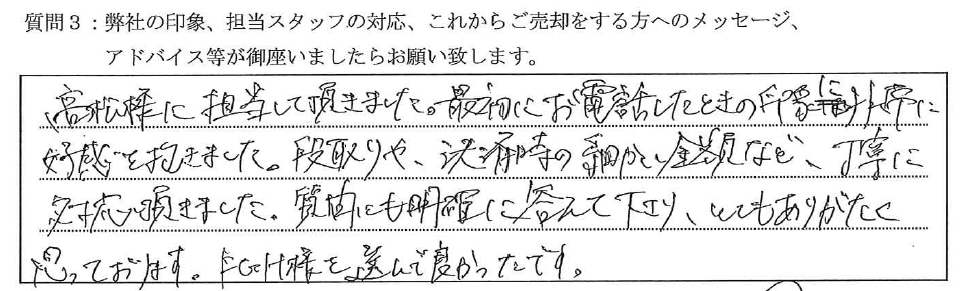 質問3:弊社の印象、担当スタッフの対応、これからご売却をする方へのメッセージ、
アドバイス等が御座いましたらお願い致します。
高松様に担当して頂きました。最初にお電話したときの印象に
好感を抱きました。段取りや、決済時の細かい金額など、丁寧に
対応頂きました。質問にも明確に答えて下さり、とてもありがたく
思っております。 様を選んで良かったです。